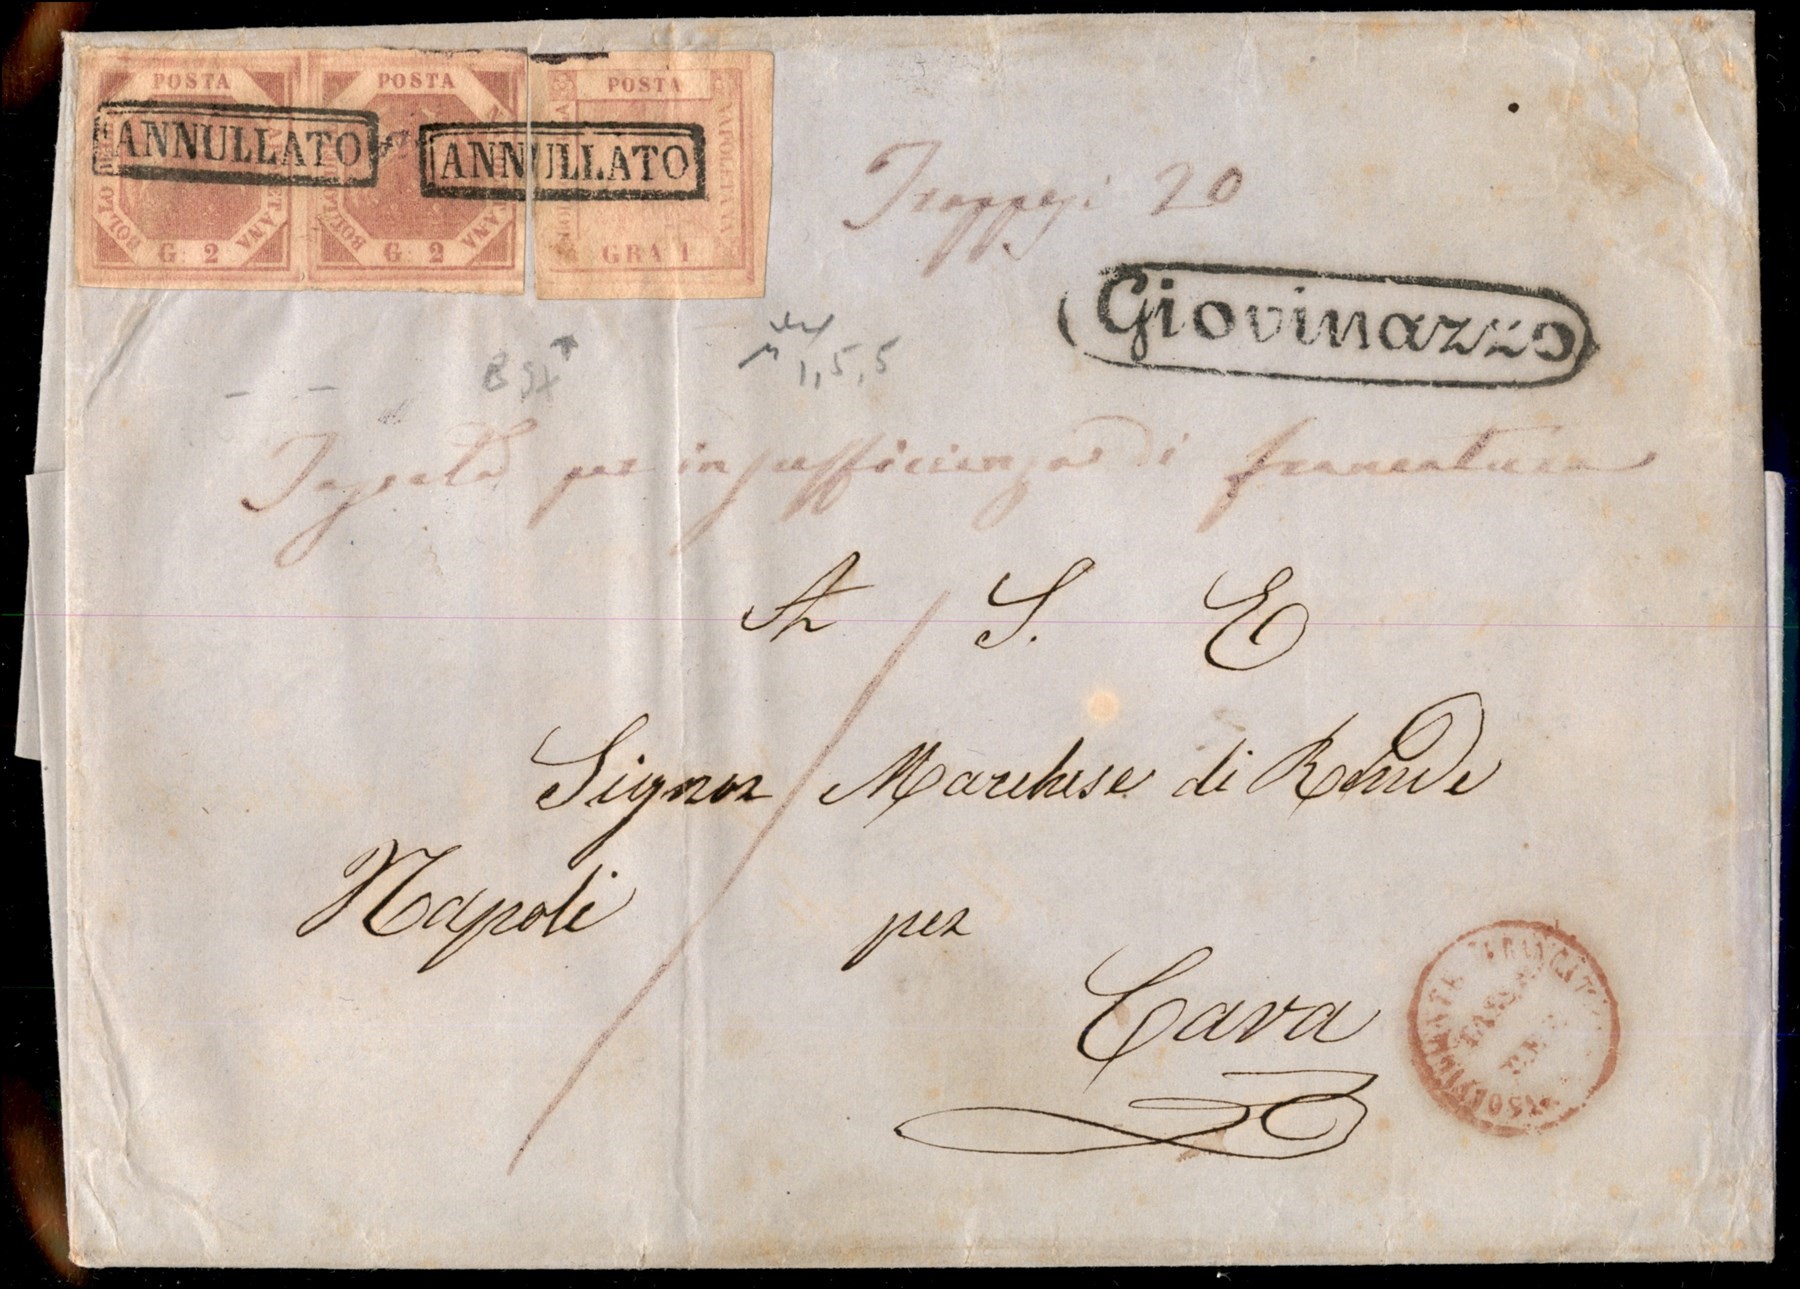 POSTA
BOLLO DELLA
G. 2
ANNULLATO
POSTA
G. 2
POSTA
NAPOLETANA
GRA 1
ANNULLATO
20
Giovinazzo
1,5,5
per insufficienza di francatura
A S. E
Signor Marchese di Rende
Napoli per
Cava